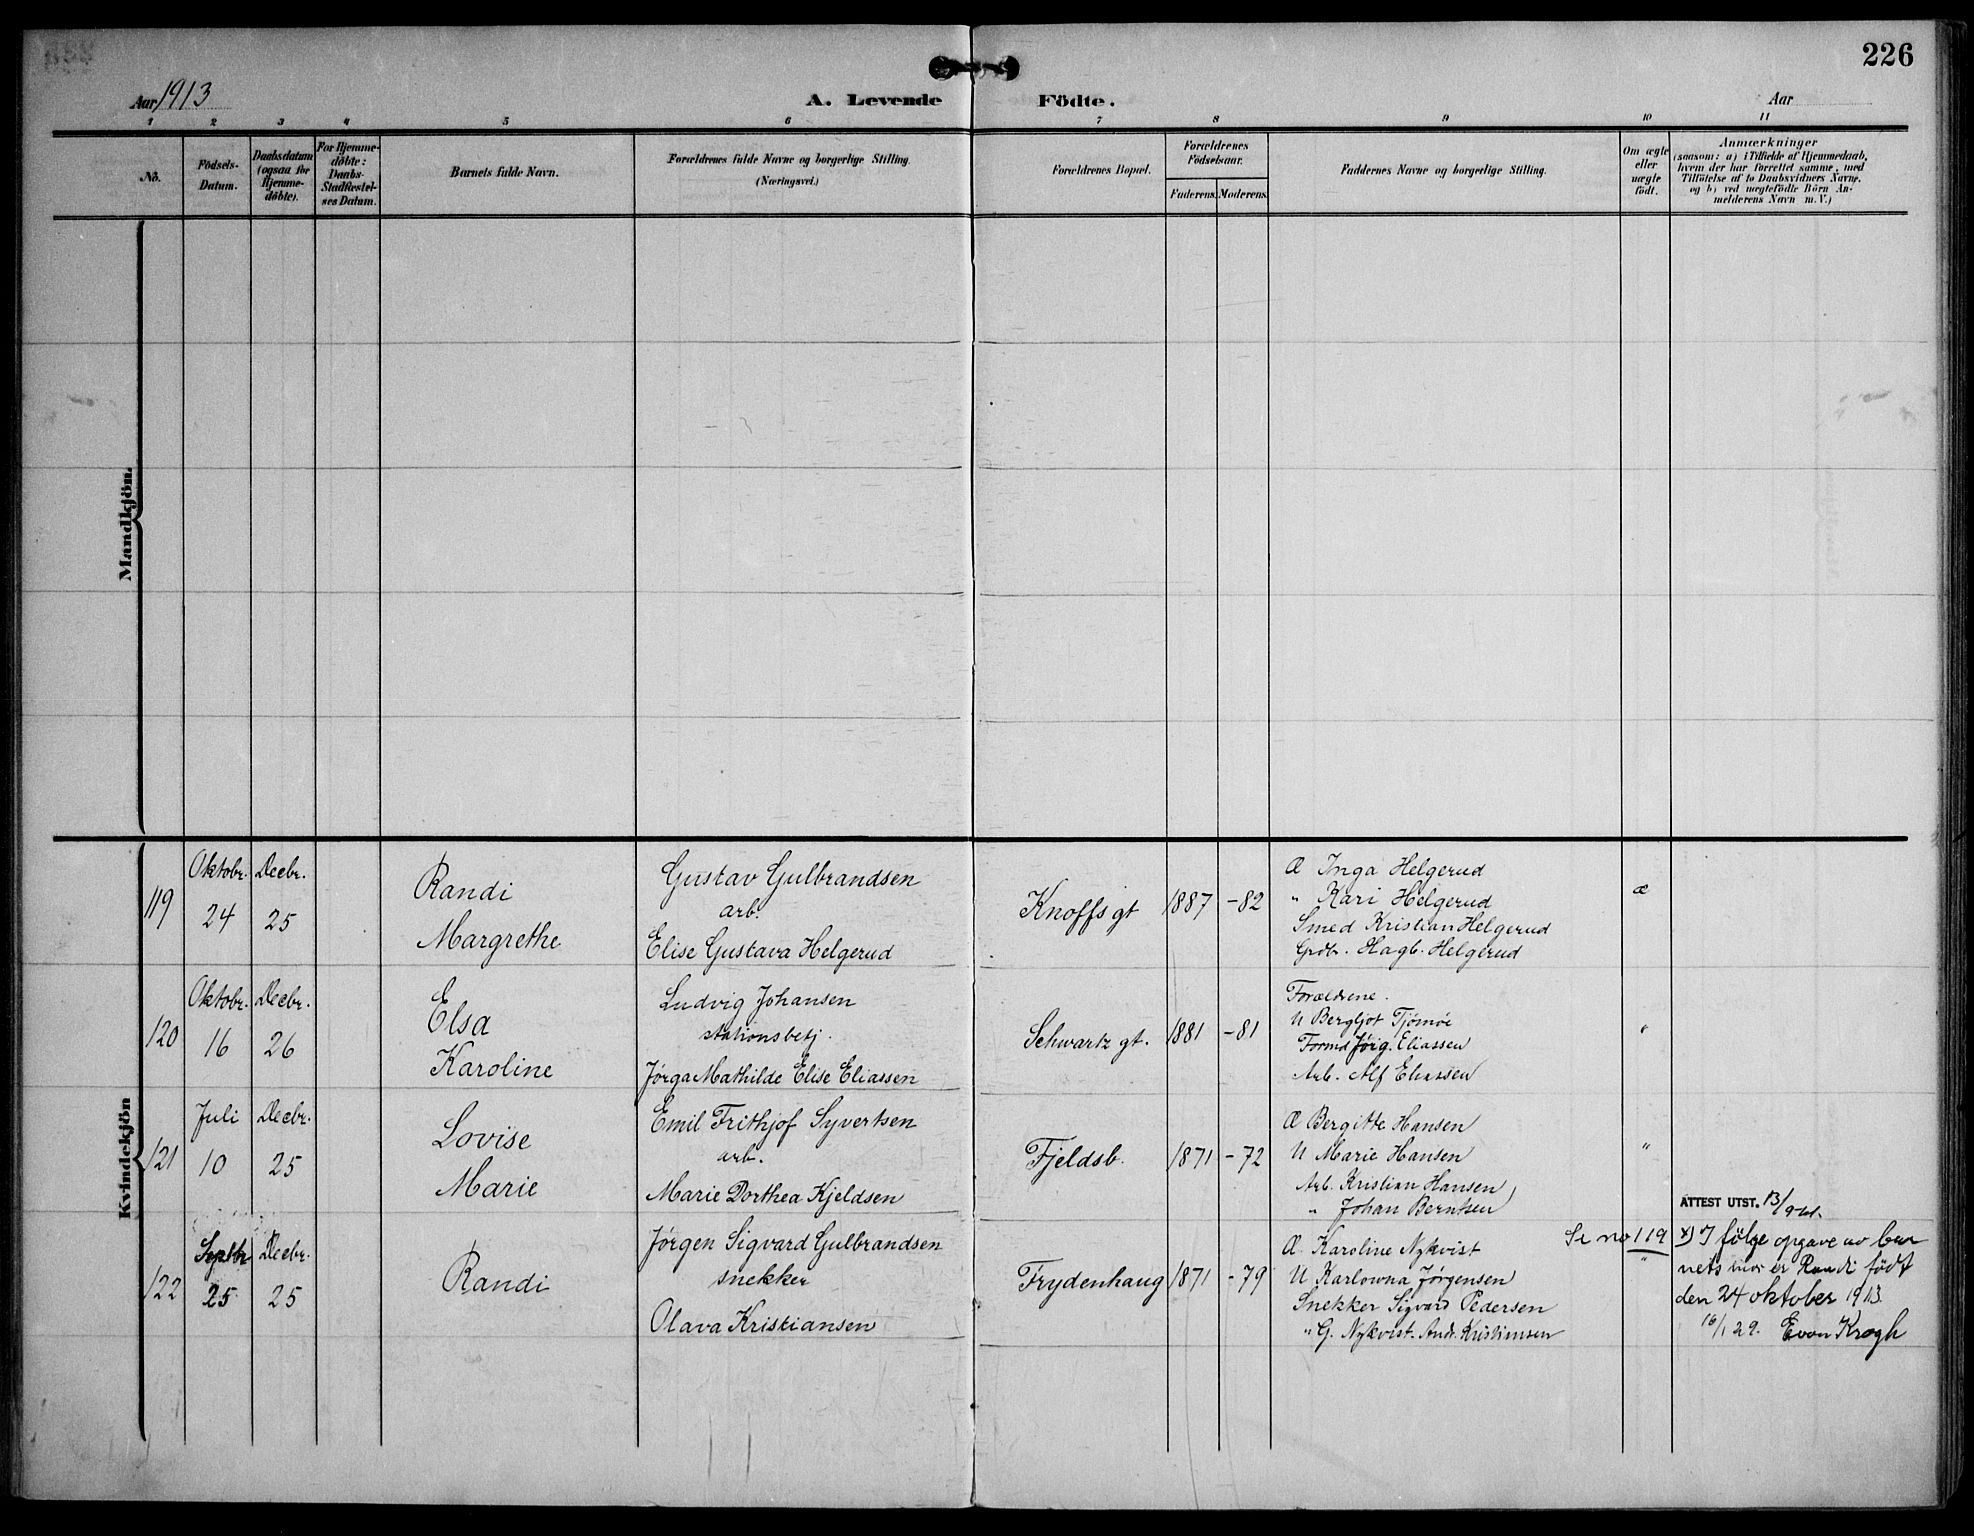 226
Aar 1913
A. Levende Födte.
Aar
1 2 3 4 5 6 7 8 9 10 11
No.
Födsels-
Datum.
Daabsdatum
(ogsaa for
Hjemme-
döbte).
For Hjemme-
döbte:
Daabs-
Stadfæstel-
ses Datum.
Barnets fulde Navn.
Forældrenes fulde Navne og borgerlige Stilling.
(Næringsvei.)
Forældrenes Bopæl.
Forældrenes
Födselsaar.
Faderens. Moderens.
Faddernes Navne og borgerlige Stilling.
Om ægte
eller
uægte
födt.
Anmærkninger
(saasom: a) i Tilfælde af Hjemmedaab,
hvem der har forrettet samme, med
Tilföielse af to Daabsvidners Navne,
og b) ved uægtefödte Börn An-
melderens Navn m. V.)
Mandkjön.
Kvindekjön
119
Oktobr.
24
Decbr.
25
Randi
Margrethe
Gustav Gulbrandsen
arb.
Elise Gustava Helgerud
Knoffs gt
1887 -82
Æ Inga Helgerud
" Kari Helgerud
Smed Kristian Helgerud
Grdbr. Hagb. Helgerud
æ
120
Oktobr.
16
Decbr.
26
Elsa
Karoline
Ludvig Johansen
stationsbetj.
Jørga Mathilde Elise Eliassen
Schwartz gt.
1881 -81
Forældrene.
U Bergljot Tjømøe
Formd Jørg. Eliassen
Arb. Alf Eliassen
"
121
Juli
10
Decbr.
25
Lovise
Marie
Emil Frithjof Syvertsen
arb.
Marie Dorthea Kjeldsen
Fjeldsb.
1871 -72
Æ Bergitte Hansen
U Marie Hansen
Arb. Kristian Hansen
" Johan Berntsen
"
ATTEST UTST. 13/9
122
Septbr
25
Decbr.
25
Randi
Jørgen Sigvard Gulbrandsen
snekker
Olava Kristiansen
Frydenhaug
1871 -79
Æ. Karoline Nykvist
U Karlowna Jørgensen
Snekker Sigvard Pedersen
" G. Nykvist. Andr. Kristiansen
Se no 119
"
x) I følge opgave av bar
nets mor er Randi født
den 24 oktober 1913.
16/1 29. Evon Krogh